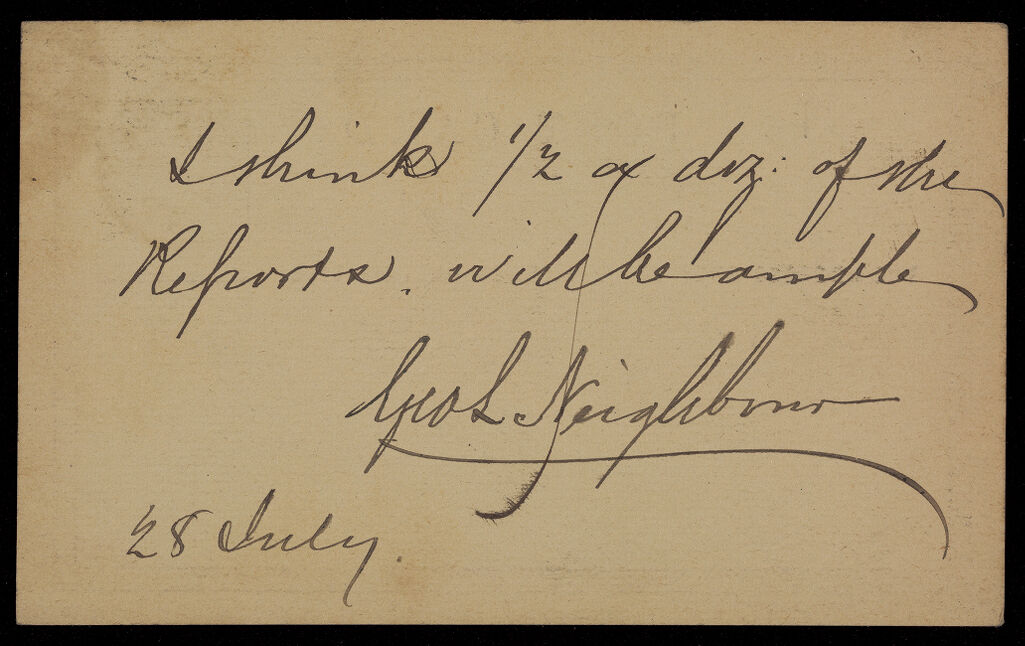 I think 1/2 a doz: of the
Reports. will be ample
Geo L Neighbour
28 July.